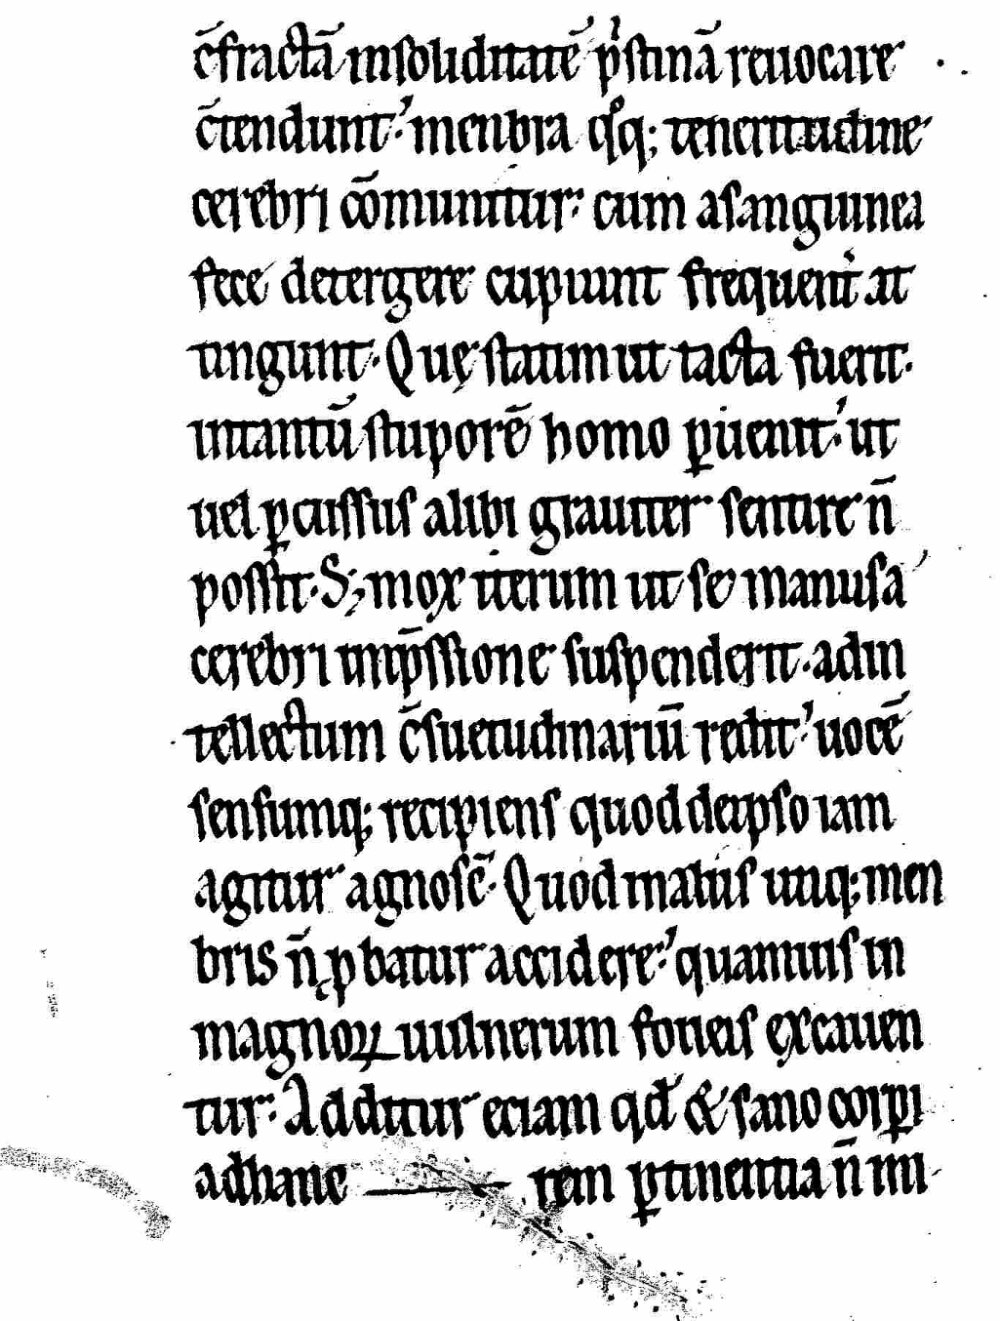 c̄fractā insoliditatē pͥstinā reuocare
c̄tendunt. menbra qͦq; teneritudine
cerebri cōmunitur. cum asanguinea
fece detergere cupiunt frequent̾ at
tingunt. Quę statim ut tacta fuerit.
intantū stuporē homo ꝑuenit. ut
uel ꝑcussus alibi grauiter sentire n̄
possit. S; mox iterum ut se manus a
cerebri imp̄ssione suspenderit. adin
tellectum c̄suetudinariū redit. uocē
sensumq; recipiens quod deipso iam
agitur agnoscē. Quod malūs unq; men
bris n̄ ꝓbatur accidere. quamuis in
magnoꝝ uulnerum foueis excauen
tur. Additur eciam qd̄ & sano corꝑi
adhanc rem ꝑtinentia n̄ mi